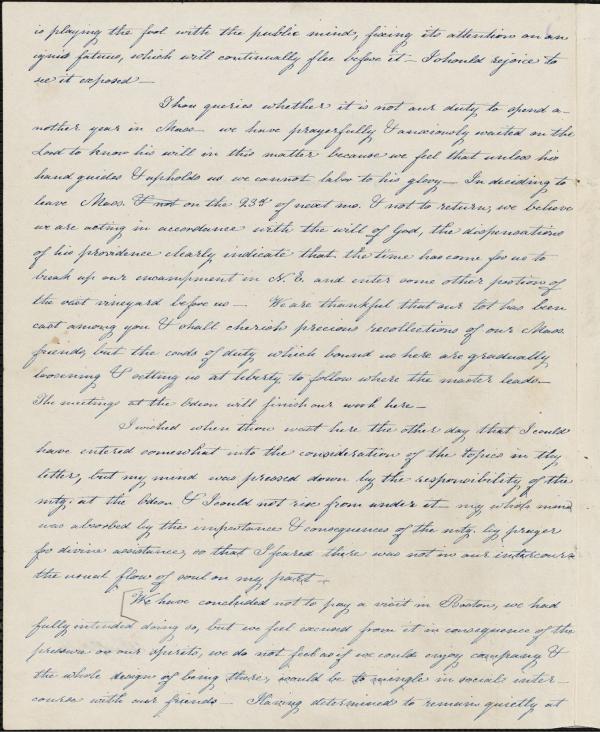 is playing the fool with the public mind, fixing its attention on an
ignis fatuus, which will continually flee before it — I should rejoice to
see it exposed —
Thou queries whether it is not our duty to spend a-
nother year in Mass — we have prayerfully & anxiously waited on the
Lord to know his will in this matter because we feel that unless his
hand guides & upholds us we cannot labor to his glory — In deciding to
leave Mass. & not on the 23d of next mo. & not to return, we believe
we are acting in accordance with the will of God, the dispensations
of his providence clearly indicate that the time has come for us to
break up our encampment in N. E. and enter some other portion of
the vast vineyard before us — We are thankful that our lot has been
cast among you & shall cherish precious recollections of our Mass.
friends, but the cords of duty which bound us here are gradually
loosening & setting us at liberty to follow where the master leads —
The meetings at the Odeon will finish our work here —
I wished when thou wast here the other day that I could
have entered somewhat into the consideration of the topics in thy
letter, but my mind was pressed down by the responsibility of the
mtg. at the Odeon & I could not rise from under it — my whole mind
was absorbed by the importance & consequences of the mtg. by prayer
for divine assistance, so that I feared there was not in our intercourse
the usual flow of soul on my part —
[We have concluded not to pay a visit in Boston, we had
fully intended doing so, but we feel excused from it in consequence of the
pressure on our spirits, we do not feel as if we could enjoy company &
the whole design of being there, would be to mingle in social inter-
course with our friends — Having determined to remain quietly at